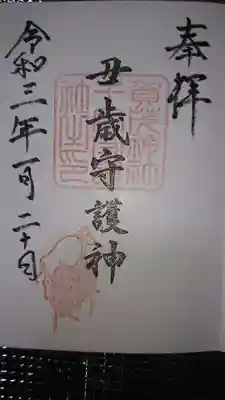 奉拝
丑歳守護神
令和三年一月二十日